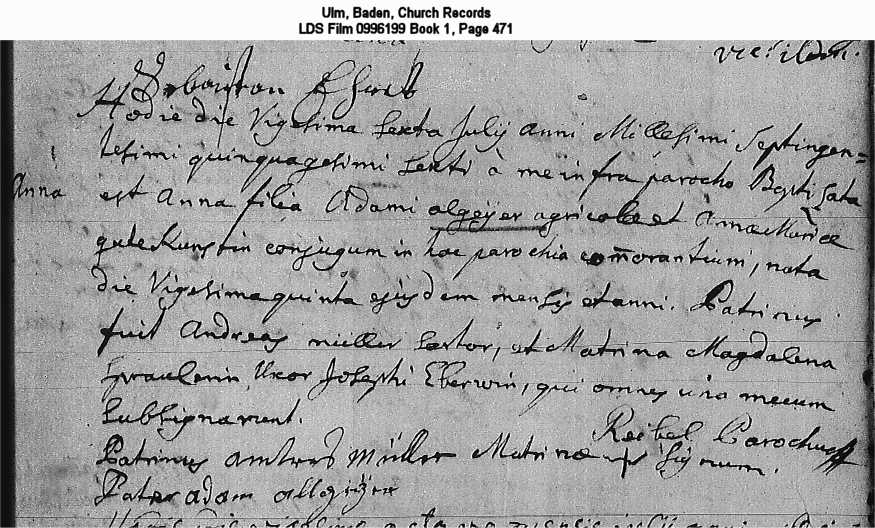 Ulm, Baden, Church Records
LDS Film 0996199 Book 1, Page 471
Hodie die Vigesima Sexta Julij anni Millesimi Septingen=
tesimi quinquagesimi Sexti à me infra parocho Baptisata
Anna
est Anna filia Adami algeÿer agricolae et Annae Mariae
gutekunstin conjugum in hac parochia com̄orantium, nata
die Vigesima quinta ejusdem mensis et anni. Patrinus
fuit Andreas müller sartor, et Matrina Magdalena
Uxor Josephi Eberwin, qui omnes una mecum
subsignarunt.
Reibel Parochus
Patrinus andres Müller Matrinae + signum.
Pater adam allgeijer